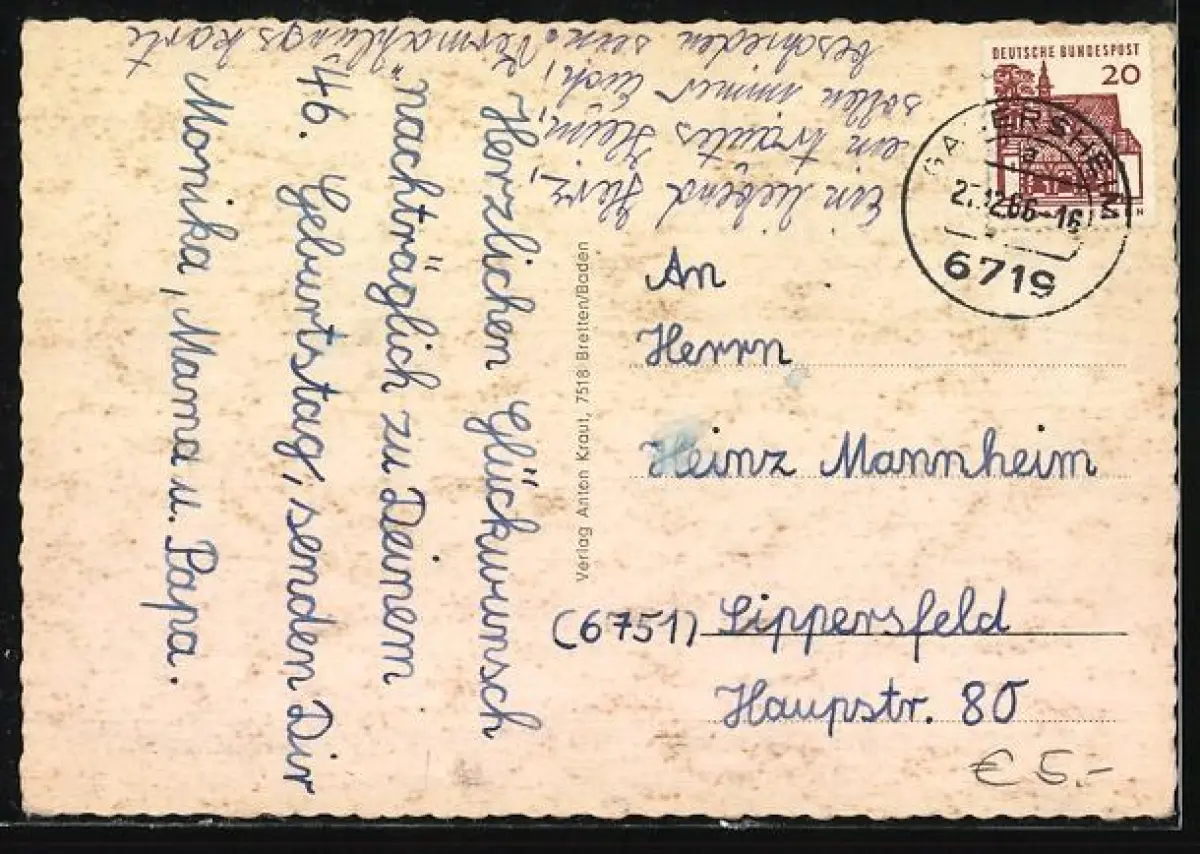 Herzlichen Glückwunsch
nachträglich zu Deinem
46. Geburtstag, senden Dir
Monika, Mama u. Papa.
Ein liebend Herz,
ein trautes Heim,
sollen immer Euch,
beschieden sein. "Vermählungskarte"
Verlag Anton Kraut, 7518 Bretten/Baden
DEUTSCHE BUNDESPOST
20
ERSHEIM
a
12.66-16
6719
An
Herrn
Heinz Mannheim
(6751) Sippersfeld
Haupstr. 80
€ 5.-